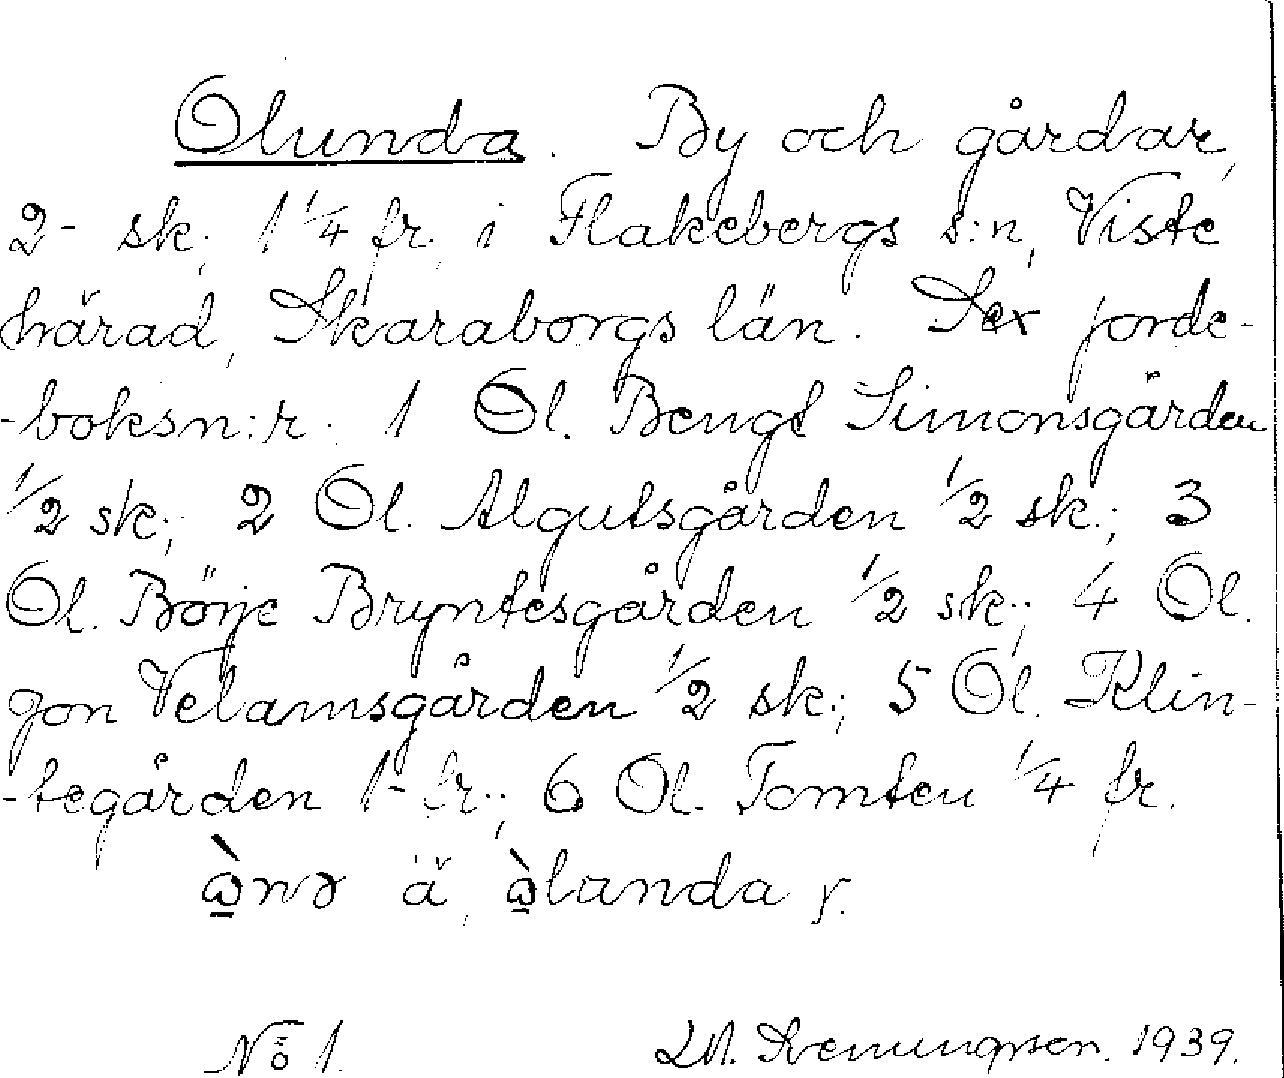 Olunda. By och gårdar,
2- sk., 1 1/4 fr. i Flakebergs s:n, Viste
härad, Skaraborgs län. Sex jorde-
-boksn:r. 1 Ol. Bengt Simonsgården
1/2 sk.; 2 Ol. Algutsgården 1/2 sk.; 3
Ol. Börje Bryntesgården 1/2 sk.; 4 Ol.
Jon Velamsgården 1/2 sk.; 5 Ol. Klin-
-tegården 1- fr.; 6 Ol. Tomten 1/4 fr.
No 1. 1939.